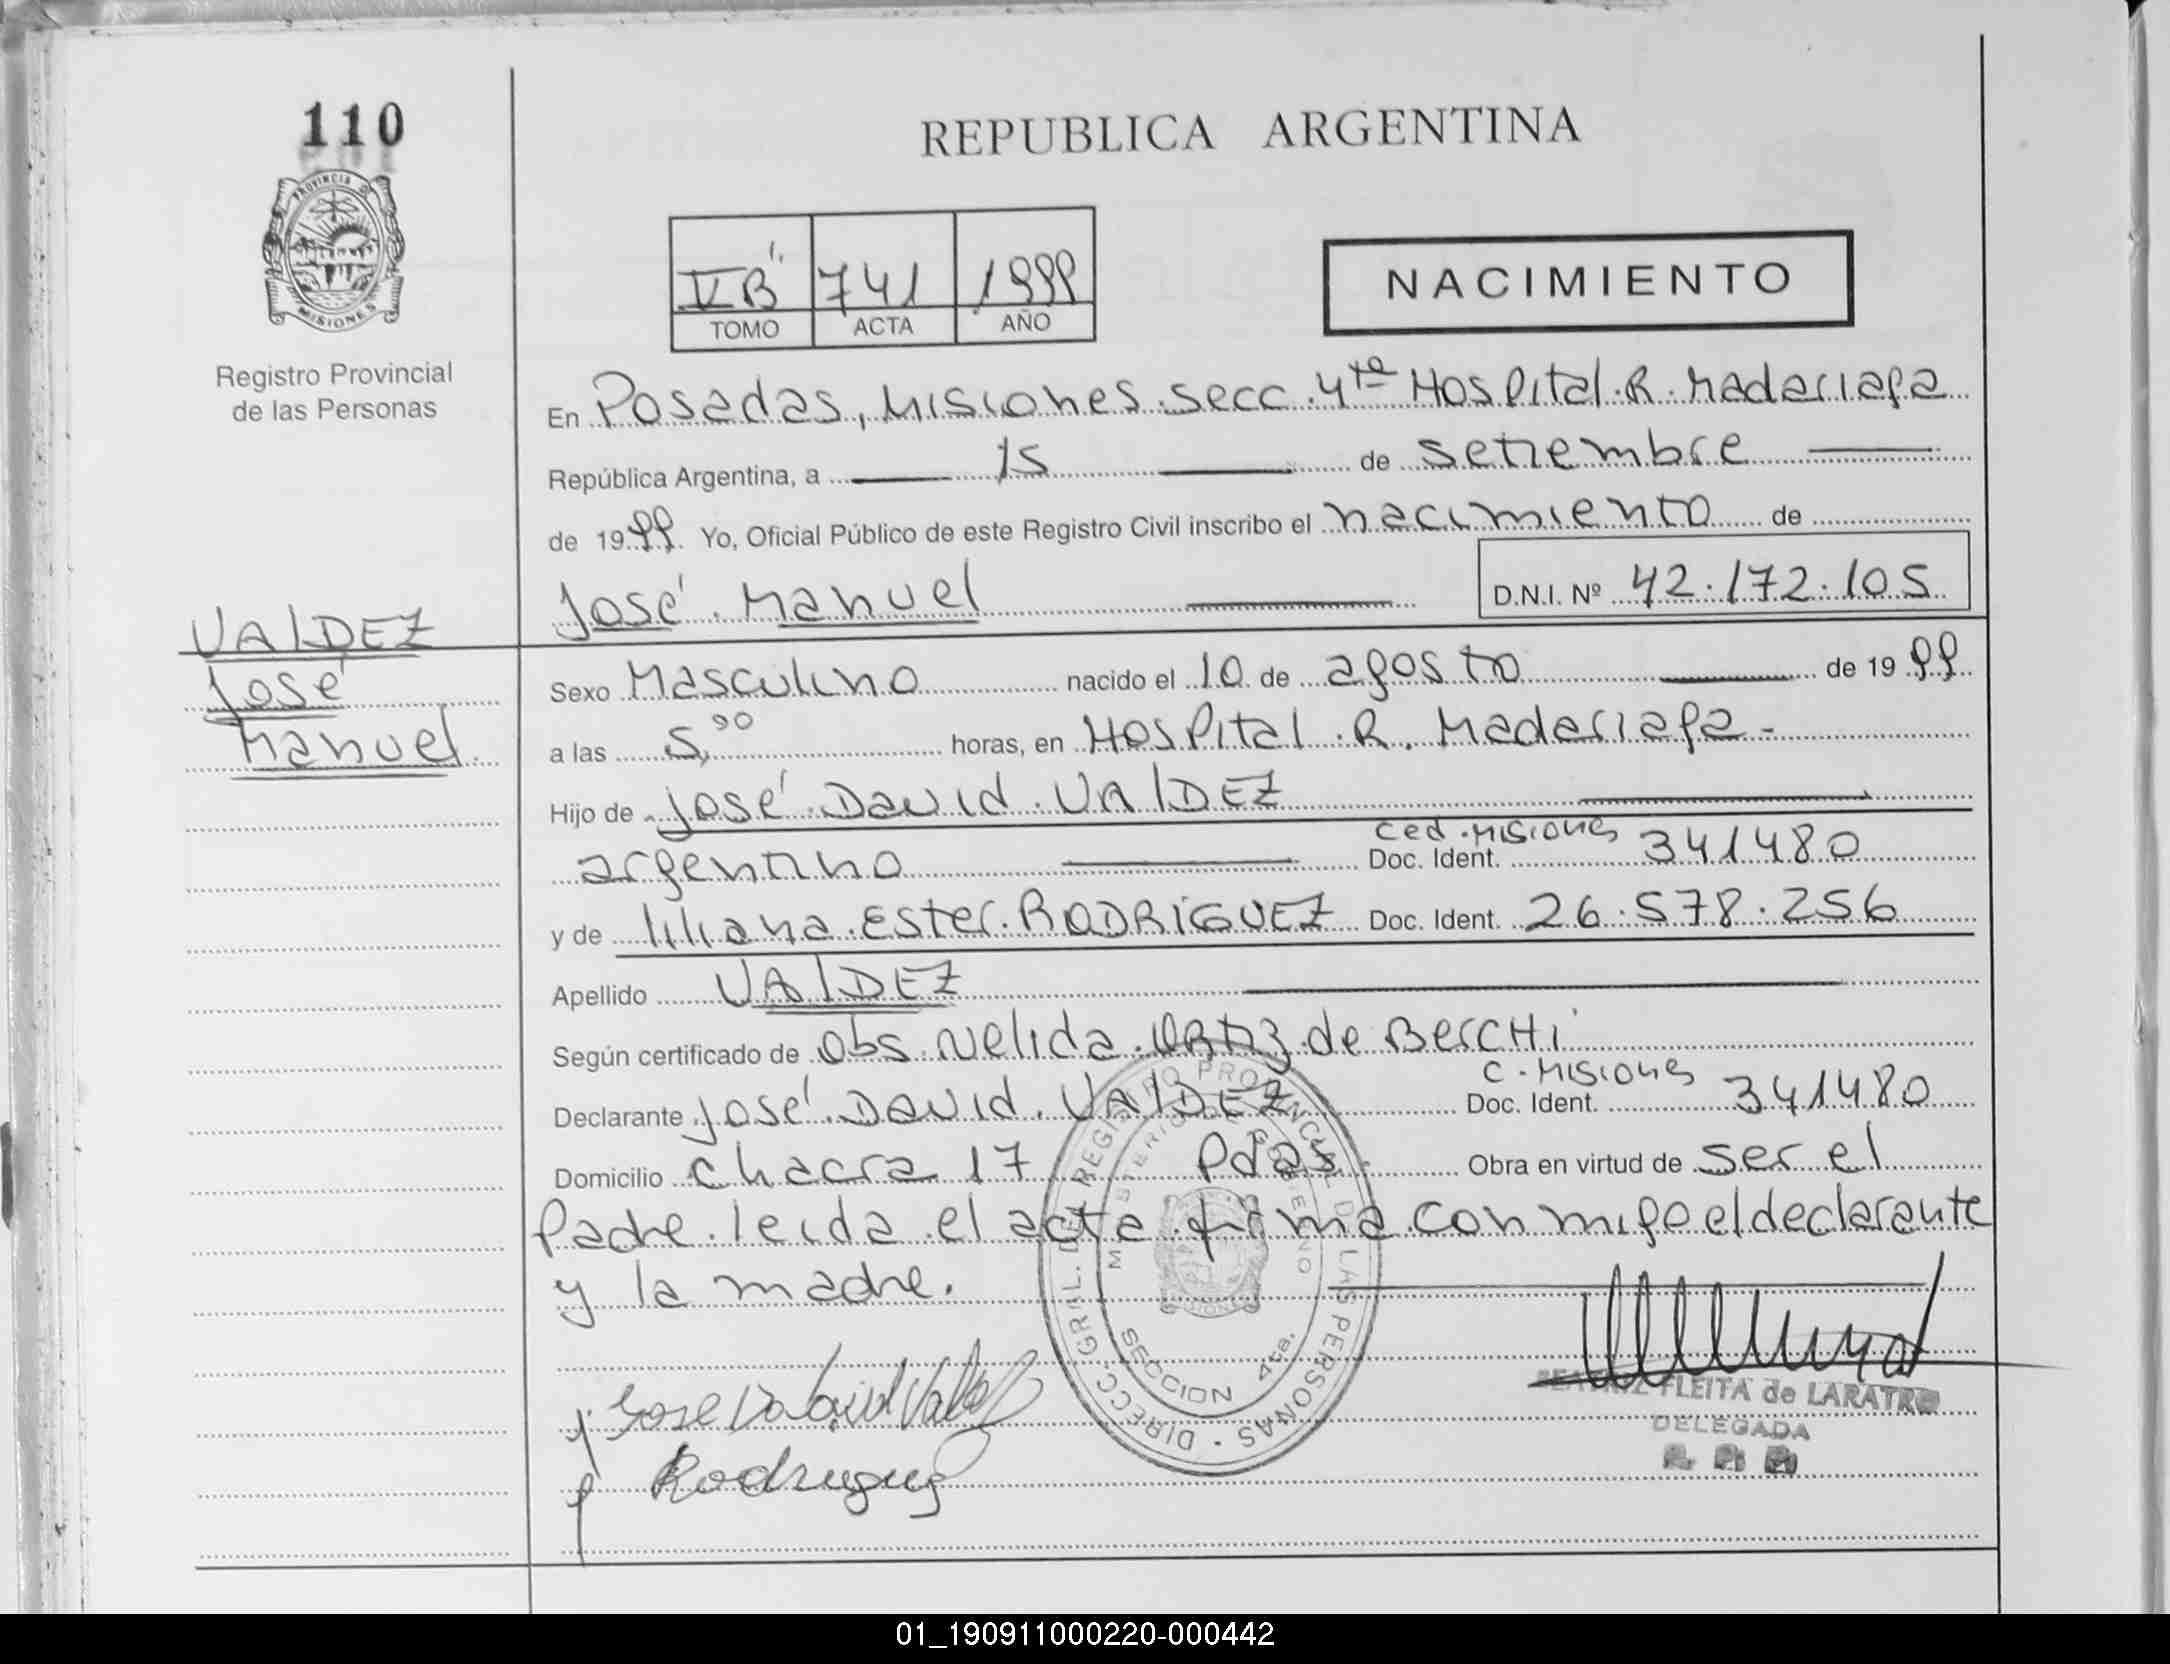 110
REPUBLICA ARGENTINA
PROVINCIA DE
MISIONES
VB' 741 1999
TOMO ACTA AÑO
NACIMIENTO
Registro Provincial
de las Personas
En Posadas, Misiones secc. 4ta Hospital R. Madariaga
República Argentina, a 15 de setiembre
de 1999 Yo, Oficial Público de este Registro Civil inscribo el nacimiento de
José Manuel D.N.I. Nº 42.172.105
VALDEZ
José
Manuel
Sexo Masculino nacido el 10 de agosto de 1999
a las 5,00 horas, en Hospital R. Madariaga -
Hijo de José David VALDEZ
argentino Ced. Misiones Doc. Ident. 341480
y de liliana Ester RODRÍGUEZ Doc. Ident. 26.578.256
Apellido VALDEZ
Según certificado de Obs. Nelida de BercHi
Declarante José David VALDEZ C. Misiones Doc. Ident. 341480
Domicilio chacra 17 Pdas Obra en virtud de ser el
Padre. leida el acta firma con migo el declarante
y la madre.
DIRECC. GRAL. DEL REGISTRO PROVINCIAL DE LAS PERSONAS
MINISTERIO DE GOBIERNO
SECCION 4ta.
Jose David Valdez
Rodriguez
BEATRIZ FLEITA de LARATRO
DELEGADA
01_190911000220-000442